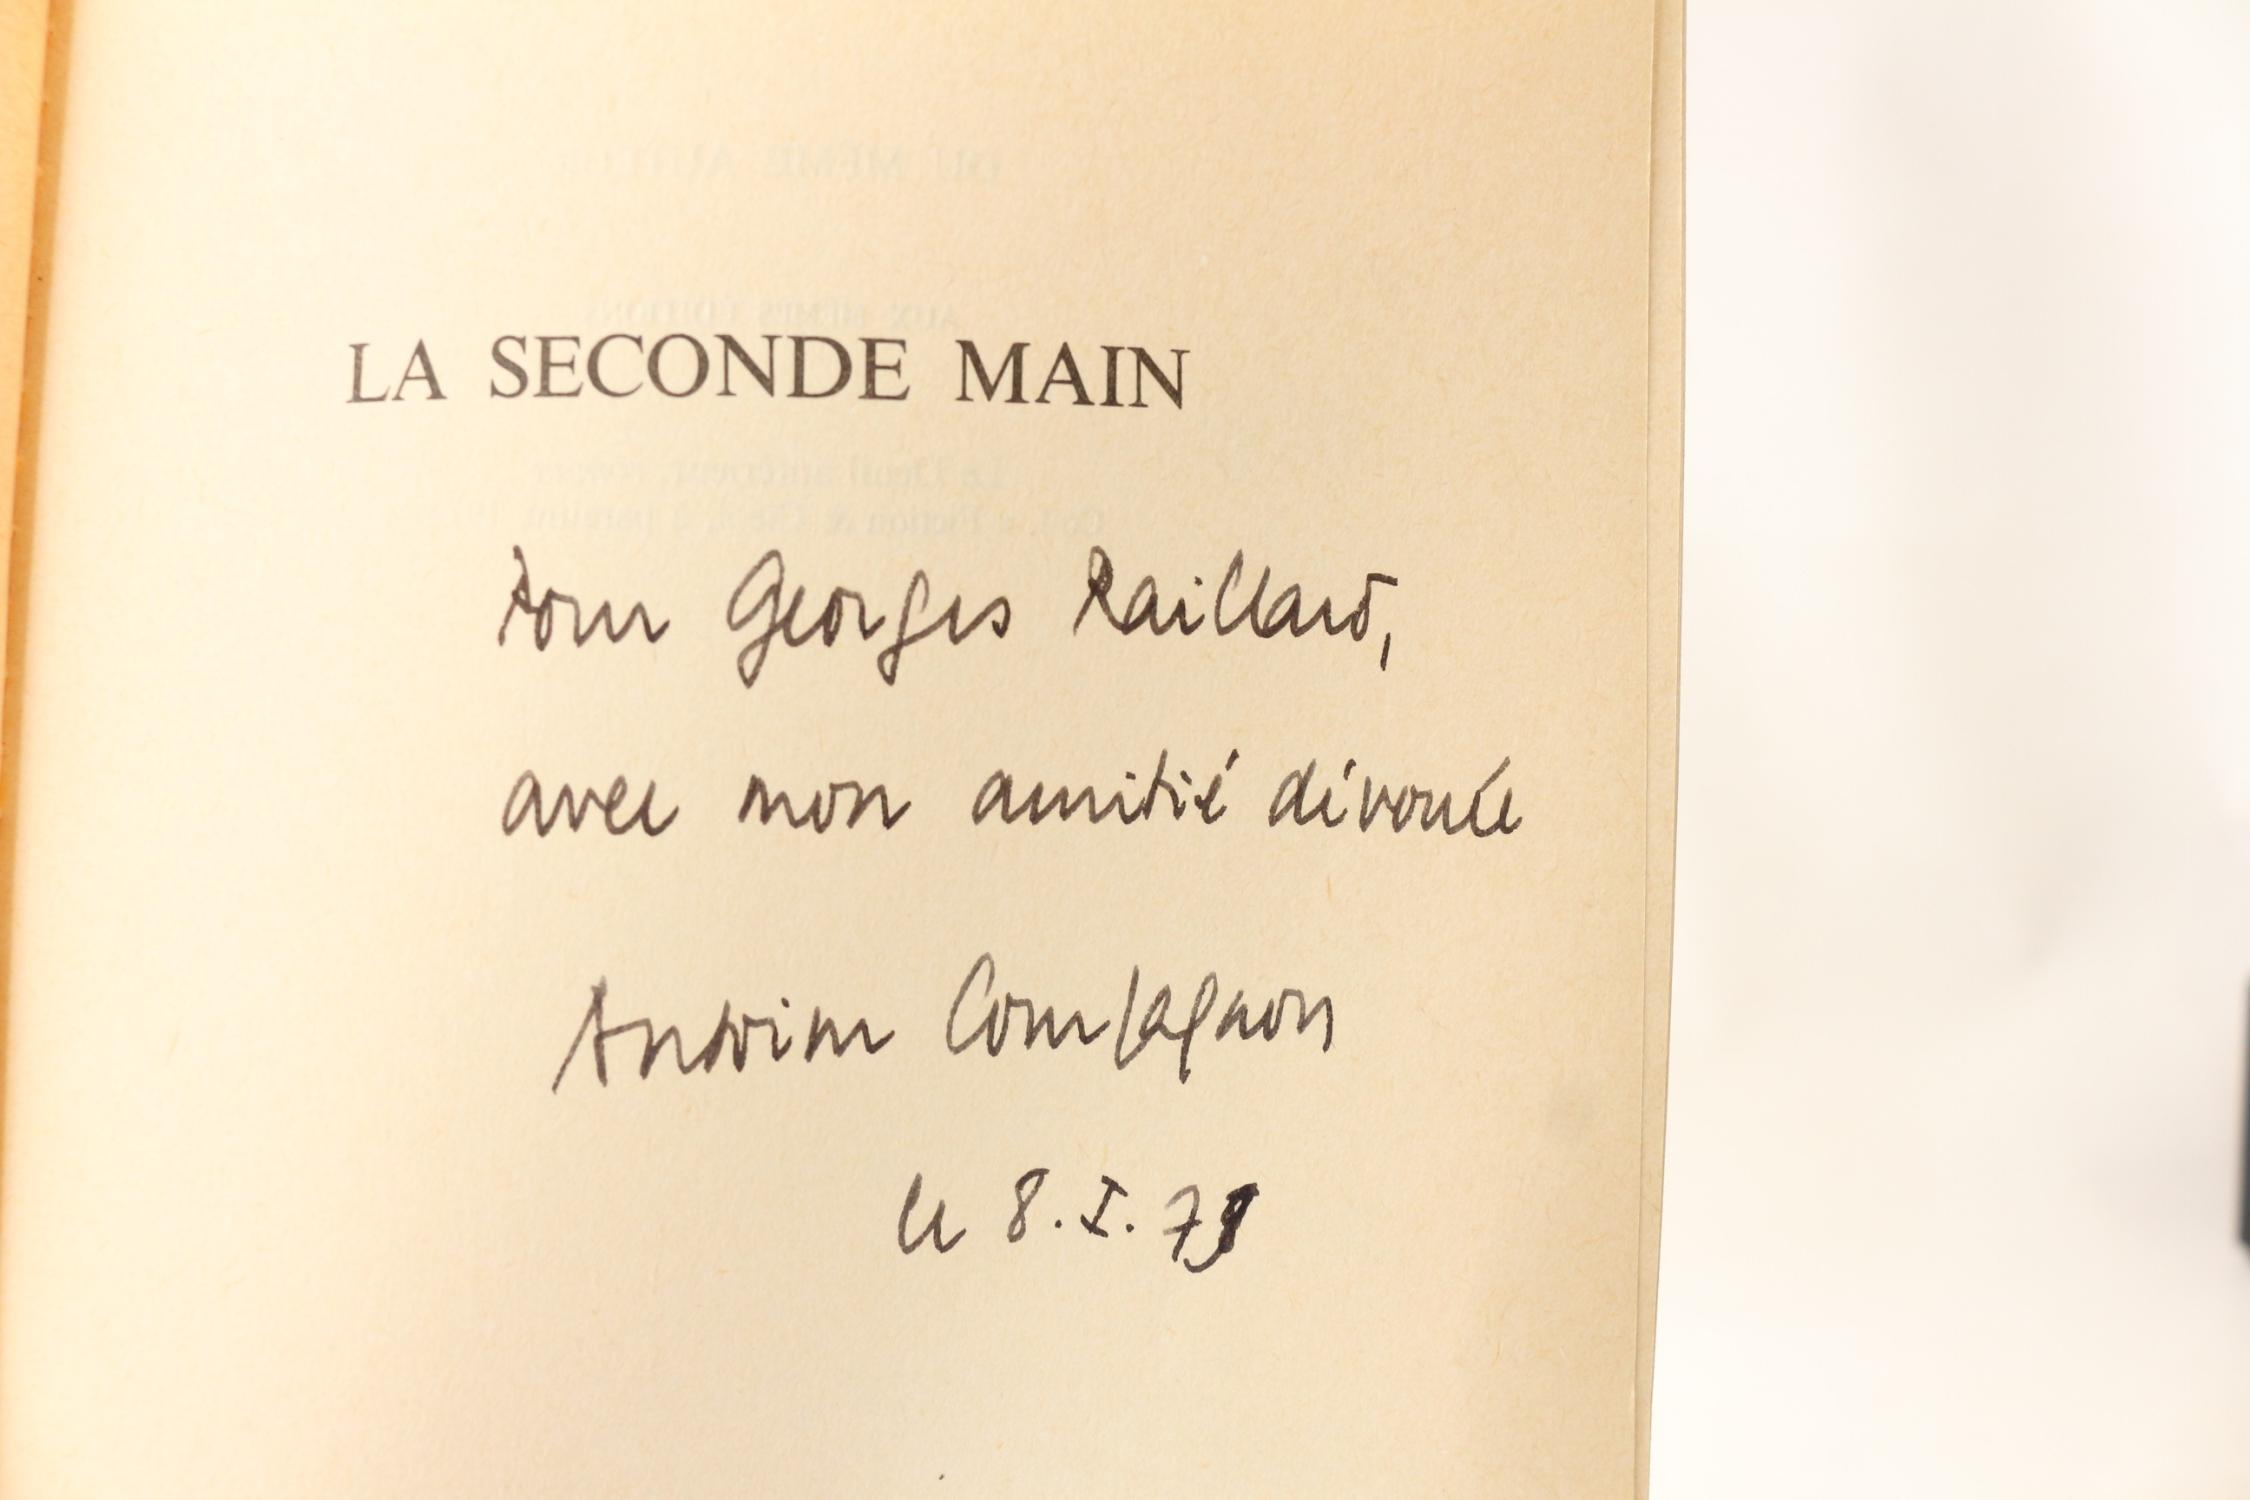 LA SECONDE MAIN
Pour Georges Raillard,
avec mon amitié dévouée
Antoine Compagnon
le 8.I.79